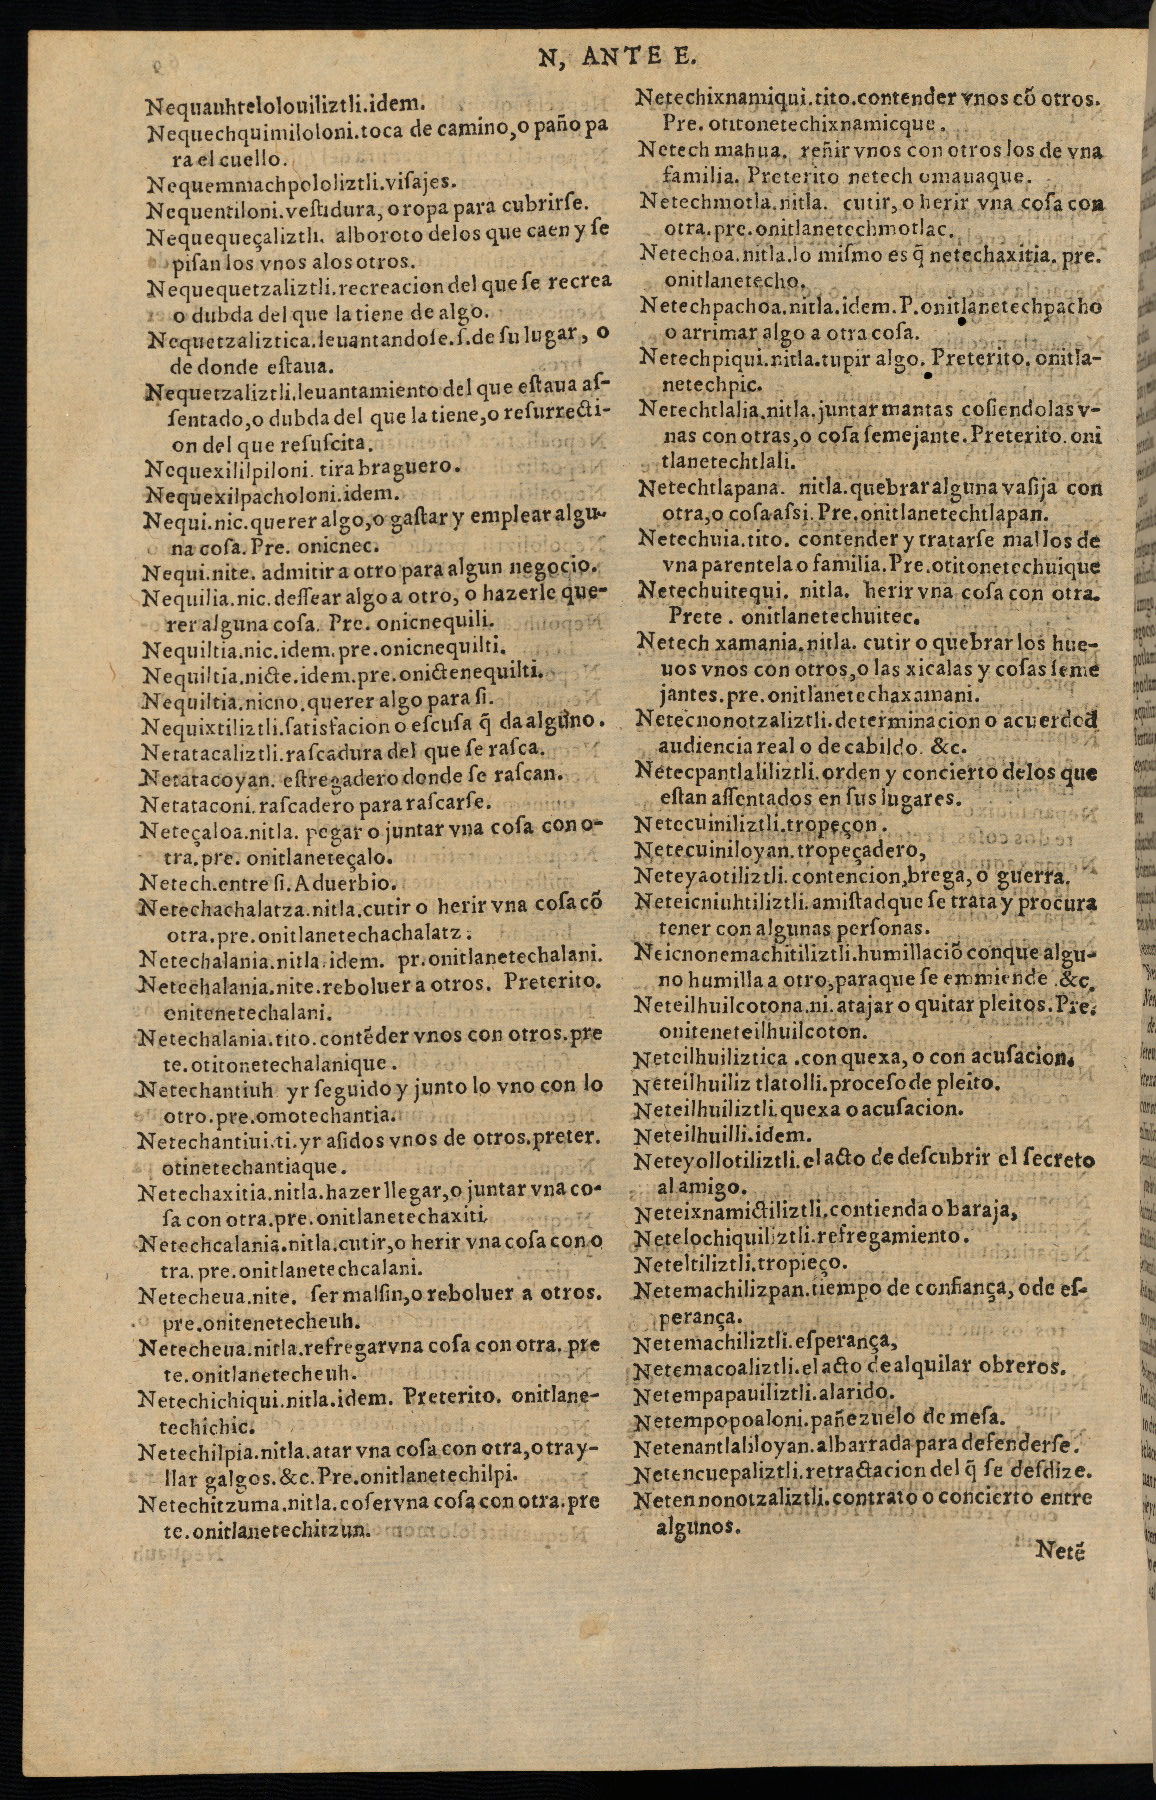 N, ANTE E.
Nequauhtelolouiliztli.idem.
Nequechquimiloloni.toca de camino,o paño pa
ra el cuello.
Nequemmachpololiztli.viſajes.
Nequentiloni.veſtidura, o ropa para cubrirſe.
Nequequeçaliztli. alboroto delos que caen y ſe
piſan los vnos alos otros.
Nequequetzaliztli.recreacion del que ſe recrea
o dubda del que la tiene de algo.
Nequetzaliztica.leuantandoſe.ſ.de ſu lugar, o
de donde eſtaua.
Nequetzaliztli.leuantamiento del que eſtaua aſ-
ſentado,o dubda del que la tiene,o reſurrecti-
on del que reſuſcita.
Nequexililpiloni. tira braguero.
Nequexilpacholoni.idem.
Nequi.nic.querer algo,o gaſtar y emplear algu-
na coſa. Pre. onicnec.
Nequi.nite. admitir a otro para algun negocio.
Nequilia.nic.deſſear algo a otro, o hazerle que-
rer alguna coſa. Pre. onicnequili.
Nequiltia.nic.idem.pre.onicnequilti.
Nequiltia.nicte.idem.pre.onictenequilti.
Nequiltia.nicno.querer algo para ſi.
Nequixtiliztli.ſatisfacion o eſcuſa q̃ da alguno.
Netatacaliztli.raſcadura del que ſe raſca.
Netatacoyan. eſtregadero donde ſe raſcan.
Netataconi.raſcadero para raſcarſe.
Neteçaloa.nitla. pegar o juntar vna coſa con o-
tra.pre. onitlaneteçalo.
Netech.entre ſi. Aduerbio.
Netechachalatza.nitla.cutir o herir vna coſa cõ
otra.pre.onitlanetechachalatz.
Netechalania.nitla.idem. pr.onitlanetechalani.
Netechalania.nite.reboluer a otros. Preterito.
onitenetechalani.
Netechalania.tito.contẽder vnos con otros.pre
te.otitonetechalanique.
Netechantiuh yr ſeguido y junto lo vno con lo
otro.pre.omotechantia.
Netechantiui.ti.yr aſidos vnos de otros.preter.
otinetechantiaque.
Netechaxitia.nitla.hazer llegar,o juntar vna co-
ſa con otra.pre.onitlanetechaxiti.
Netechcalania.nitla.cutir,o herir vna coſa con o
tra.pre.onitlanetechcalani.
Netecheua.nite. ſer malſin,o reboluer a otros.
pre.onitenetecheuh.
Netecheua.nitla.refregar vna coſa con otra. pre
te.onitlanetecheuh.
Netechichiqui.nitla.idem. Preterito. onitlane-
techichic.
Netechilpia.nitla.atar vna coſa con otra,o tray-
llar galgos.&c.Pre.onitlanetechilpi.
Netechitzuma.nitla.coſer vna coſa con otra.pre
te.onitlanetechitzun.
Netechixnamiqui.tito.contender vnos cõ otros.
Pre. otitonetechixnamicque.
Netech mahua. reñir vnos con otros los de vna
familia. Preterito netech omauaque.
Netechmotla.nitla. cutir, o herir vna coſa con
otra.pre.onitlanetechmotlac.
Netechoa.nitla.lo miſmo es q̃ netechaxitia. pre.
onitlanetecho.
Netechpachoa.nitla.idem.P.onitlanetechpacho
o arrimar algo a otra coſa.
Netechpiqui.nitla.tupir algo. Preterito. onitla-
netechpic.
Netechtlalia.nitla.juntar mantas coſiendolas v-
nas con otras,o coſa ſemejante.Preterito.oni
tlanetechtlali.
Netechtlapana. nitla.quebrar alguna vaſija con
otra,o coſa aſsi. Pre.onitlanetechtlapan.
Netechuia.tito. contender y tratarſe mal los de
vna parentela o familia.Pre.otitonetechuique
Netechuitequi. nitla. herir vna coſa con otra.
Prete. onitlanetechuitec.
Netech xamania.nitla. cutir o quebrar los hue-
uos vnos con otros,o las xicalas y coſas ſeme
jantes.pre.onitlanetechaxamani.
Netecnonotzaliztli.determinacion o acuerdo d
audiencia real o de cabildo. &c.
Netecpantlaliliztli.orden y concierto delos que
eſtan aſſentados en ſus lugares.
Netecuiniliztli.tropeçon.
Netecuiniloyan.tropeçadero,
Neteyaotiliztli.contencion,brega, o guerra.
Neteicniuhtiliztli.amiſtad que ſe trata y procura
tener con algunas perſonas.
Neicnonemachitiliztli.humillaciõ con que algu-
no humilla a otro,para que ſe emmiende .&c.
Neteilhuilcotona.ni.atajar o quitar pleitos.Pre.
oniteneteilhuilcoton.
Neteilhuiliztica .con quexa, o con acuſacion.
Neteilhuiliz tlatolli.proceſo de pleito.
Neteilhuiliztli.quexa o acuſacion.
Neteilhuilli.idem.
Neteyollotiliztli.el acto de deſcubrir el ſecreto
al amigo.
Neteixnamictiliztli.contienda o baraja,
Netelochiquiliztli.refregamiento.
Neteltiliztli.tropieço.
Netemachilizpan.tiempo de confiança, o de eſ-
perança.
Netemachiliztli.eſperança,
Netemacoaliztli.el acto de alquilar obreros.
Netempapauiliztli.alarido.
Netempopoaloni.pañezuelo de meſa.
Netenantlaliloyan.albarrada para defenderſe.
Netencuepaliztli.retractacion del q̃ ſe deſdize.
Netennonotzaliztli.contrato o concierto entre
algunos.
Netẽ